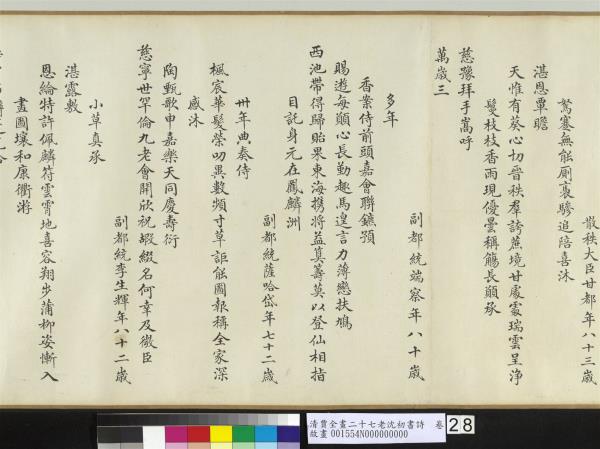 散秩大臣甘都年八十三歲
駑蹇無能厠裏驂追陪喜沐
湛恩覃瞻
天惟有葵心切晉秩羣誇蔗境甘處處瑞雲呈淨
鬘枝枝香雨現優曇稱觴長願承
慈豫拜手嵩呼
萬歲三
副都統端察年八十歲
多年
香案侍前頭嘉會聯鑣預
賜遊每顚心長勤趣馬遑言力薄戀扶鳩
西池帶得歸貽果東海携將益筭籌莫以登仙相指
目託身元在鳳麟洲
副都統薩哈岱年七十二歲
卅年典奏侍
楓宸華髮榮叨異數頻寸草詎能圖報稱全家深
感沐
陶甄歌申嘉樂天同慶壽衍
慈寧世罕倫九老會開欣祝嘏綴名何幸及微臣
副都統李生輝年八十二歲
小草真承
湛露敷
恩綸特許佩麟符雲霄地喜容翔步蒲柳姿慚入
畫圖壤和康衢將
清賈全畫二十七老沈初書詩 卷
故畫 001554N000000000
28